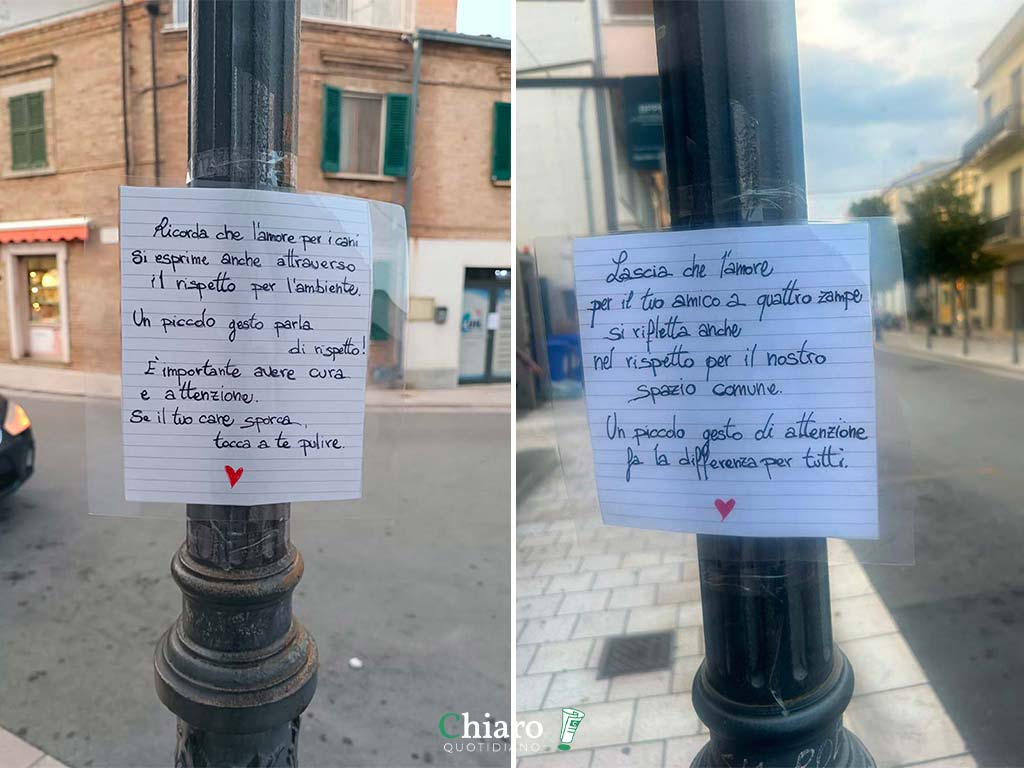 Ricorda che l'amore per i cani
si esprime anche attraverso
il rispetto per l'ambiente.
Un piccolo gesto parla
di rispetto!
È importante avere cura
e attenzione.
Se il tuo cane sporca,
tocca a te pulire.
Lascia che l'amore
per il tuo amico a quattro zampe
si rifletta anche
nel rispetto per il nostro
spazio comune.
Un piccolo gesto di attenzione
fa la differenza per tutti.
Chiaro
QUOTIDIANO